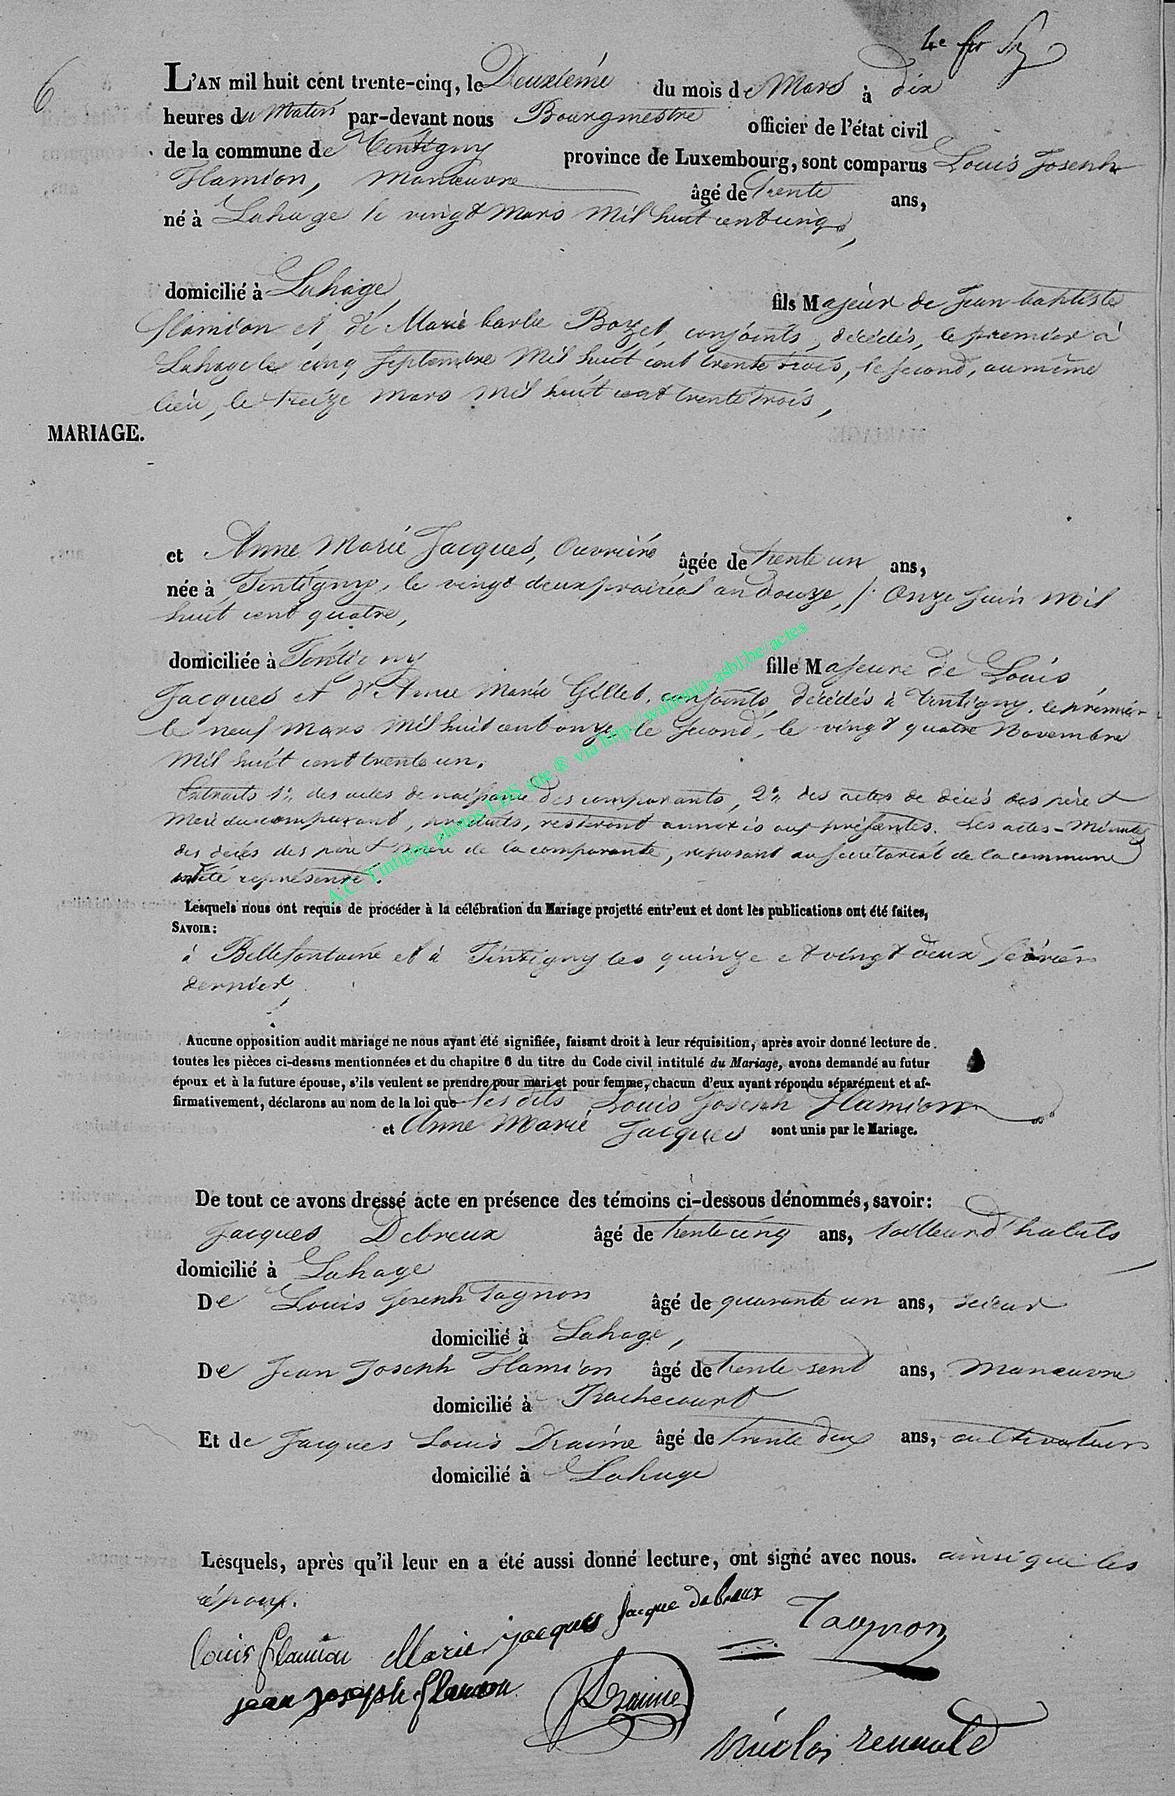 6
L'AN mil huit cent trente-cinq, le Deuxième du mois de Mars à dix
heures du Matin par-devant nous Bourgmestre officier de l'état civil
de la commune de Tintigny province de Luxembourg, sont comparus Louis Joseph
Flamion, Manœuvre âgé de trente ans,
né à Lahage le vingt Mars mil huit cent cinq,
domicilié à Lahage, fils Majeur de Jean baptiste
flamion et de Marie barbe Bozet, conjoints, décédés, le premier à
Lahage le cinq Septembre Mil huit cent trente trois, le second, au même
lieu, le treize mars mil huit cent trente trois,
MARIAGE.
et Anne Marie Jacques, Ouvrière âgée de trente un ans,
née à Tintigny, le vingt deux prairéal an douze, /: Onze Juin Mil
huit cent quatre,
domiciliée à Tintigny fille Majeure de Louis
Jacques et d'Anne Marie Gillet, conjoints, décédés à Tintigny, le premier
le neuf Mars Mil huit cent onze, le second, le vingt quatre Novembre
Mil huit cent trente un.
Extraits 1° des actes de naissance des comparants, 2° des actes de décès des père et
Mère du comparant, produits, resteront annexés aux présentes. Les actes-Minutes
des décès des père et Mère de la comparante, reposant au secrétariat de la commune
été représenté.
Lesquels nous ont requis de procéder à la célébration du Mariage projetté entr'eux et dont les publications ont été faites,
SAVOIR:
à Bellefontaine et à Tintigny les quinze et vingt deux février
dernier,
Aucune opposition audit mariage ne nous ayant été signifiée, faisant droit à leur réquisition, après avoir donné lecture de
toutes les pièces ci-dessus mentionnées et du chapitre 6 du titre du Code civil intitulé du Mariage, avons demandé au futur
époux et à la future épouse, s'ils veulent se prendre pour mari et pour femme, chacun d'eux ayant répondu séparément et af-
firmativement, déclarons au nom de la loi que les dits Louis Joseph Flamion
et Anne Marie Jacques sont unis par le Mariage.
De tout ce avons dressé acte en présence des témoins ci-dessous dénommés, savoir:
Jacques Debreux âgé de trente cinq ans, tailleur d'habits
domicilié à Lahage
De Louis Joseph Tagnon âgé de quarante un ans, scieur
domicilié à Lahage,
De Jean Joseph Flamion âgé de trente sept ans, Manœuvre
domicilié à Rachecourt
Et de Jacques Louis Draime âgé de trente deux ans, cultivateur
domicilié à Lahage
Lesquels, après qu'il leur en a été aussi donné lecture, ont signé avec nous. ainsi que les
époux.
Louis flamion Marie jacques Jacque debreux Tagnon
jean joseph flamion Draime
Nicolas renauld
A.C. Tintigny photos LDS site ® via http://wallonia-asbl.be/actes